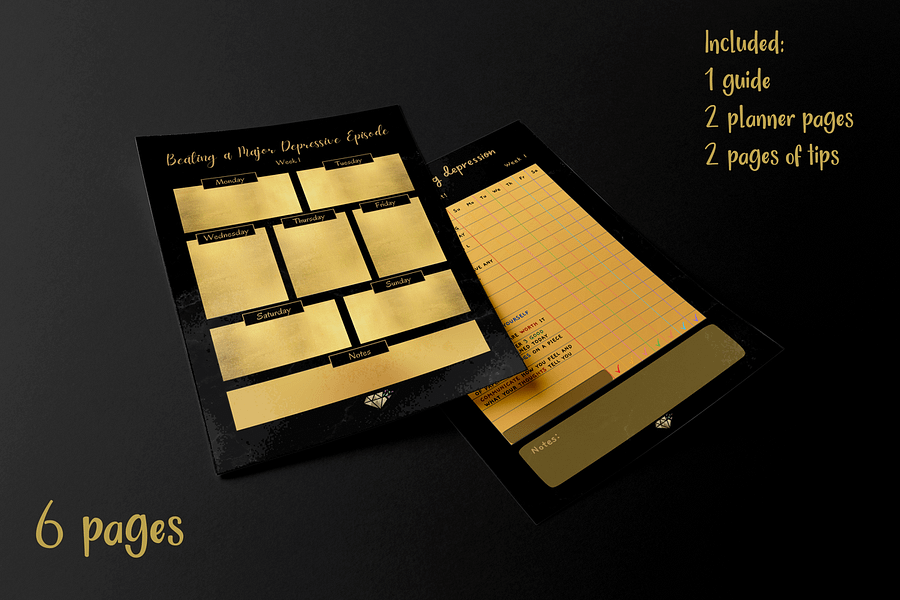 Included:
1 guide
2 planner pages
2 pages of tips
Beating a Major Depressive Episode
Week 1
Monday
Tuesday
Wednesday
Thursday
Friday
Saturday
Sunday
Notes
depression
Week 1
Su Mo Tu We Th Fr Sa
YOURSELF
WORTH IT
3 GOOD
TODAY
ON A PIECE
COMMUNICATE HOW YOU FEEL AND
WHAT YOUR THOUGHTS TELL YOU
Notes:
6 pages